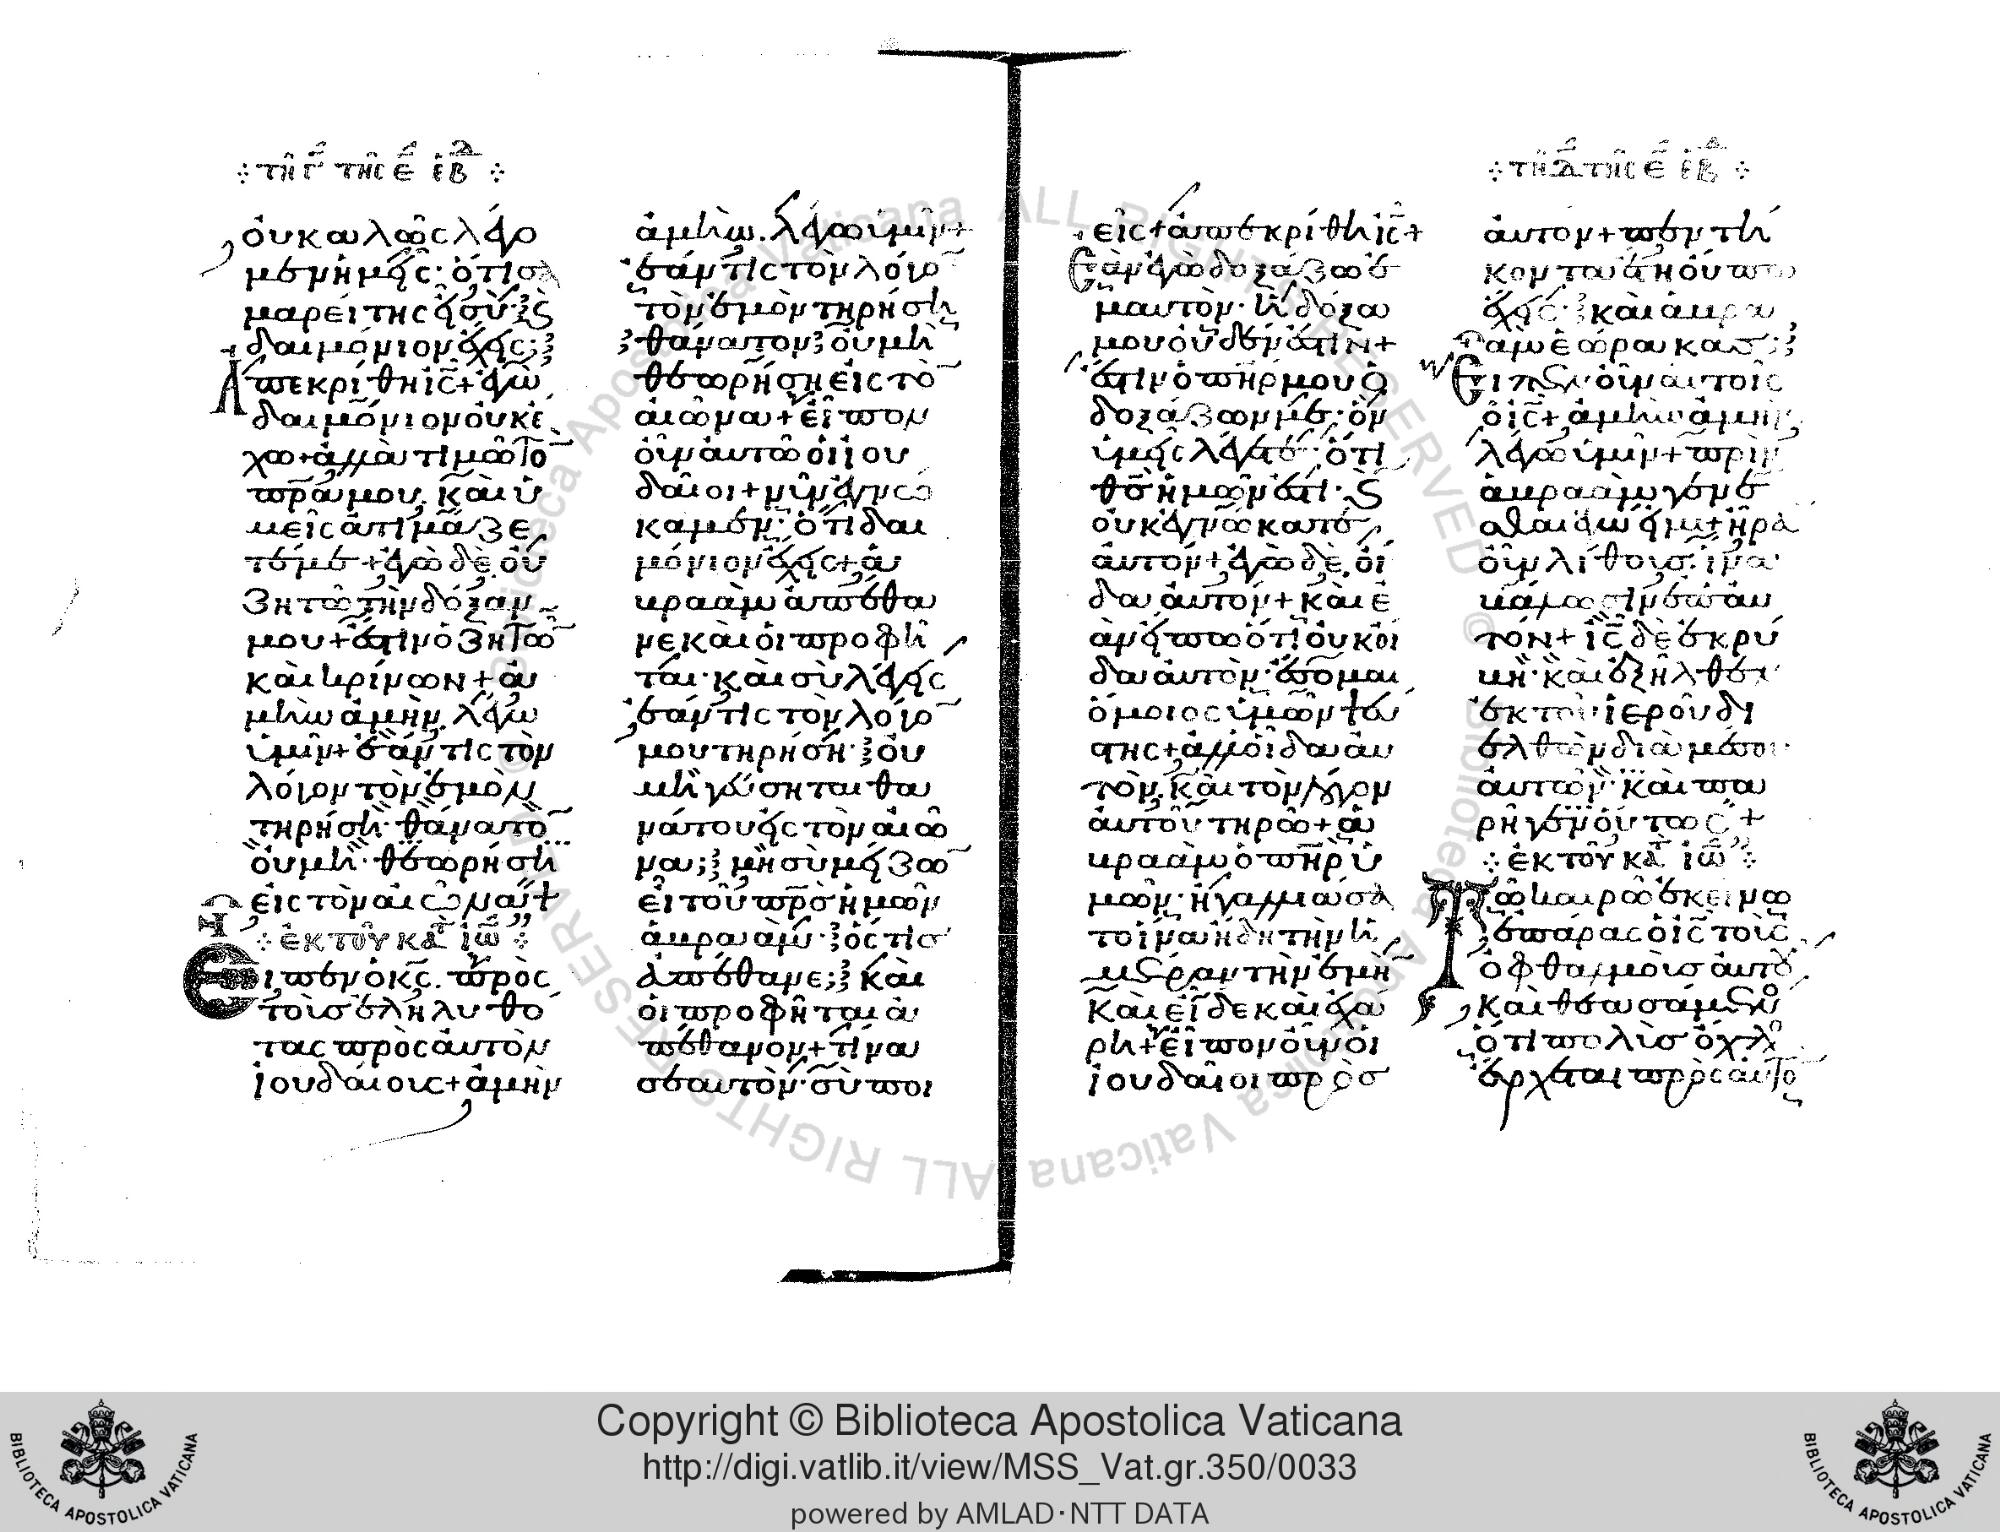 τῆ γ τῆς ε ἑβδ
οὐ καλῶς λέγο
μεν ἡμεῖς· ὅτι σα
μαρείτης εἶ σύ· κ(αὶ)
δαιμόνιον ἔχεις;
Ἀπεκρίθη ἰς+ ἐγὼ
δαιμόνιον οὐκ ἔ
χω+ ἀλλὰ τιμῶ το
πρα μου. καὶ ὑ
μεῖς ἀτιμάζε
τέ με+ ἐγὼ δὲ οὐ
ζητῶ τὴν δόξαν
μου+ ἔστιν ὁ ζητῶ
καὶ κρίνων+ ἀ
μὴν ἀμὴν λέγω
ὑμῖν+ ἐάν τις τὸν
λόγον τὸν ἐμὸν
τηρήση· θάνατο
οὐ μὴ· θεωρήση
εἰς τὸν αἰῶνα+
ἐκ τοῦ κατ ἰω
Εἶπεν ὁ κς. πρὸς
τοὺς ἐληλυθό
τας πρὸς αὐτὸν
ἰουδαίους+ ἀμὴν
ἀμὴν. λέγω ὑμῖν+
ἐάν τις τὸν λόγο
τὸν ἐμὸν τηρήση
θάνατον οὐ μὴ
θεωρήση εἰς τὸ
αἰῶνα+ εἶπον
οὖν αὐτῶ οἱ ἰου
δαῖοι+ νῦν ἐγνώ
καμεν· ὅτι δαι
μόνιον ἔχεις+ ἀ
βραὰμ ἀπέθα
νε καὶ οἱ προφῆ
ται· καὶ σὺ λέγεις
ἐάν τις τὸν λόγο
μου τηρήση· οὐ
μὴ γεύσηται θα
νάτου εἰς τὸν αἰῶ
να; μὴ σὺ μείζω
εἶ τοῦ πρς ἡμῶν
ἀβραάμ· ὅστις
ἀπέθανε; καὶ
οἱ προφῆται ἀ
πέθανον+ τίνα
σεαυτὸν· σὺ ποι
τῆ δ τῆς ε ἑβδ
εῖς+ ἀπεκρίθη ις+
Ἐὰν ἐγὼ δοξάζω ἐ
μαυτὸν· ἡ δόξα
μου οὐδέν ἐστιν+
ἔστιν ὁ πηρ μου ὁ
δοξάζων με· ὃν
ὑμεῖς λέγετε· ὅτι
θς ἡμῶν ἐστι· κ(αὶ)
οὐκ ἐγνώκατε
αὐτόν+ ἐγὼ δὲ οἶ
δα αὐτόν+ καὶ ἐ
ὰν εἴπω ὅτι οὐκ οἶ
δα αὐτὸν· ἔσομαι
ὅμοιος ὑμῶν ψεύ
στης+ ἀλλ οἶδα αὐ
τὸν. καὶ τὸν λόγον
αὐτοῦ τηρῶ+ ἀ
βραὰμ ὁ πηρ ὑ
μῶν· ἠγαλλιάσα
το ἵνα ἴδη τὴν ἡ
μέραν τὴν ἐμὴ
καὶ εἶδε καὶ ἐχά
ρη+ εἶπον οὖν οἱ
ἰουδαῖοι πρὸς
αὐτον+ πεντή
κοντα ἔτη οὔπω
ἔχεις· καὶ ἀβρα
ὰμ ἑώρακας;
Εἶπεν οὖν αὐτοῖς
ὁ ις+ ἀμὴν ἀμὴν
λέγω ὑμῖν+ πρὶν
ἀβραὰμ γενέ
σθαι ἐγώ εἰμι+ ἦρα
οὖν λίθους· ἵνα
βάλωσιν ἐπ αὐ
τόν+ ις δὲ ἐκρύ
βη· καὶ ἐξῆλθεν
ἐκ τοῦ ἱεροῦ δι
ελθὼν διὰ μέσου
αὐτῶν· καὶ πα
ρῆγεν οὕτως+
ἐκ τοῦ κατ ἰω
Τῶ καιρῶ ἐκείνω
ἐπάρας ὁ ις τοὺς
ὀφθαλμοὺς αὐτοῦ
καὶ θεασάμενος
ὅτι πολὺς ὄχλο
ἔρχεται πρὸς αὐτο
Copyright © Biblioteca Apostolica Vaticana
http://digi.vatlib.it/view/MSS_Vat.gr.350/0033
powered by AMLAD·NTT DATA
BIBLIOTECA APOSTOLICA VATICANA
BIBLIOTECA APOSTOLICA VATICANA